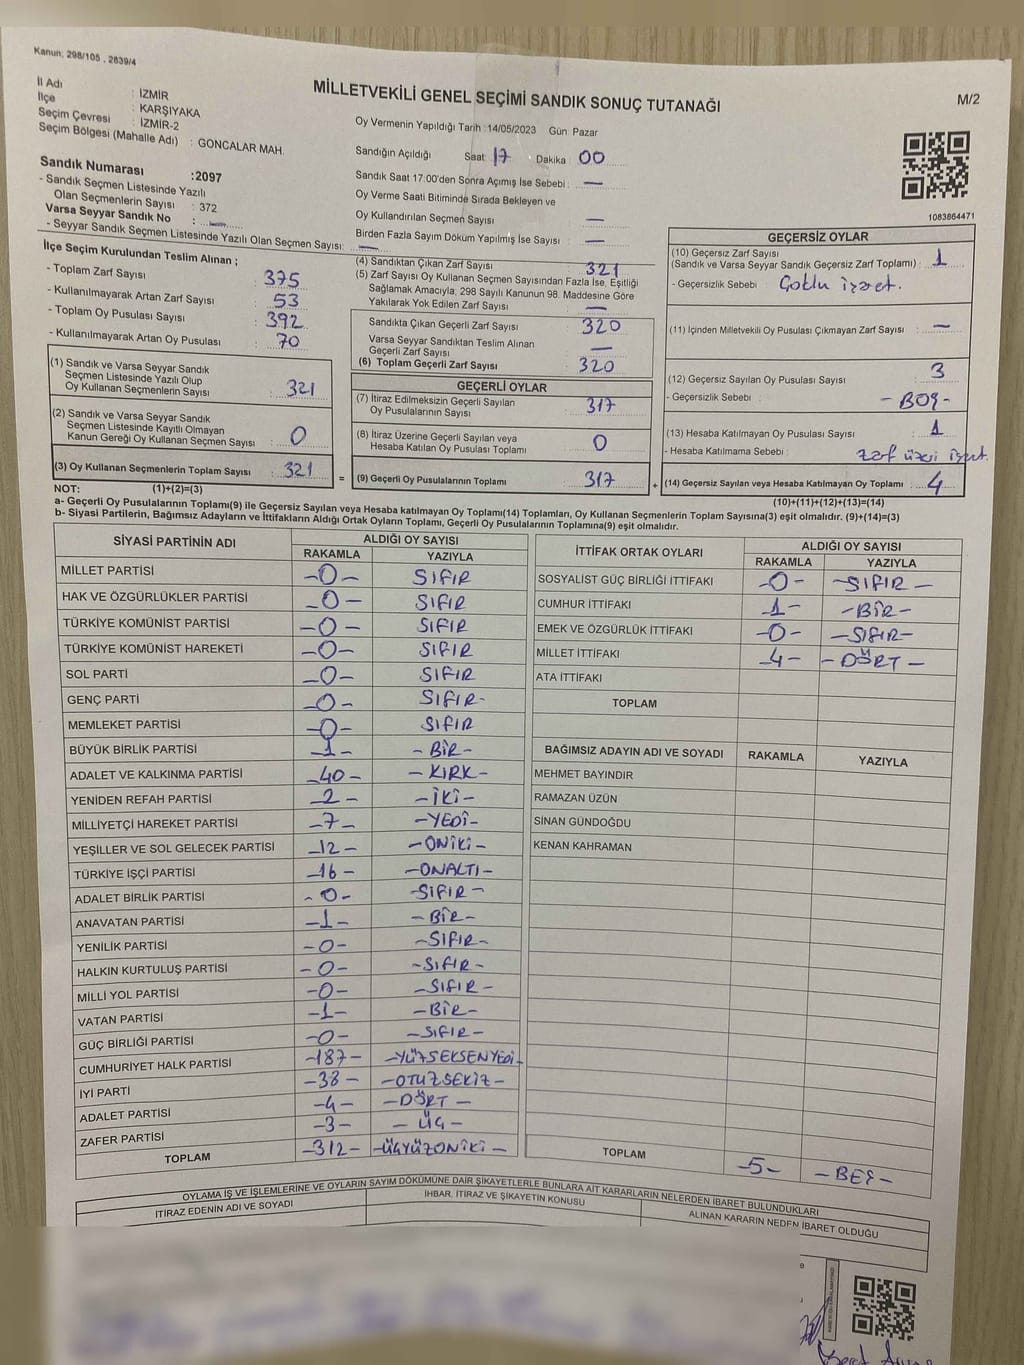 Kanun, 298/105 , 2839/4
MİLLETVEKİLİ GENEL SEÇİMİ SANDIK SONUÇ TUTANAĞI
M/2
İl Adı : İZMİR
İlçe : KARŞIYAKA
Seçim Çevresi : İZMİR-2
Seçim Bölgesi (Mahalle Adı) : GONCALAR MAH.
Sandık Numarası :2097
- Sandık Seçmen Listesinde Yazılı
Olan Seçmenlerin Sayısı : 372
Varsa Seyyar Sandık No : —
- Seyyar Sandık Seçmen Listesinde Yazılı Olan Seçmen Sayısı: —
Oy Vermenin Yapıldığı Tarih :14/05/2023 Gün: Pazar
Sandığın Açıldığı Saat: 17 Dakika 00
Sandık Saat 17:00'den Sonra Açımış İse Sebebi : —
Oy Verme Saati Bitiminde Sırada Bekleyen ve
Oy Kullandırılan Seçmen Sayısı —
Birden Fazla Sayım Döküm Yapılmış İse Sayısı : —
1083864471
İlçe Seçim Kurulundan Teslim Alınan ;
- Toplam Zarf Sayısı : 375
- Kullanılmayarak Artan Zarf Sayısı : 53
- Toplam Oy Pusulası Sayısı : 392
- Kullanılmayarak Artan Oy Pusulası : 70
(1) Sandık ve Varsa Seyyar Sandık
Seçmen Listesinde Yazılı Olup
Oy Kullanan Seçmenlerin Sayısı : 321
(2) Sandık ve Varsa Seyyar Sandık
Seçmen Listesinde Kayıtlı Olmayan
Kanun Gereği Oy Kullanan Seçmen Sayısı : 0
(3) Oy Kullanan Seçmenlerin Toplam Sayısı : 321
(4) Sandıktan Çıkan Zarf Sayısı : 321
(5) Zarf Sayısı Oy Kullanan Seçmen Sayısından Fazla İse, Eşitliği
Sağlamak Amacıyla; 298 Sayılı Kanunun 98. Maddesine Göre
Yakılarak Yok Edilen Zarf Sayısı : —
Sandıkta Çıkan Geçerli Zarf Sayısı : 320
Varsa Seyyar Sandıktan Teslim Alınan
Geçerli Zarf Sayısı : —
(6) Toplam Geçerli Zarf Sayısı : 320
GEÇERLİ OYLAR
(7) İtiraz Edilmeksizin Geçerli Sayılan
Oy Pusulalarının Sayısı : 317
(8) İtiraz Üzerine Geçerli Sayılan veya
Hesaba Katılan Oy Pusulası Toplamı : 0
= (9) Geçerli Oy Pusulalarının Toplamı : 317 +
GEÇERSİZ OYLAR
(10) Geçersiz Zarf Sayısı
(Sandık ve Varsa Seyyar Sandık Geçersiz Zarf Toplamı) : 1
- Geçersizlik Sebebi : Çoklu işaret.
(11) İçinden Milletvekili Oy Pusulası Çıkmayan Zarf Sayısı : —
(12) Geçersiz Sayılan Oy Pusulası Sayısı : 3
- Geçersizlik Sebebi : - BOŞ -
(13) Hesaba Katılmayan Oy Pusulası Sayısı : 1
- Hesaba Katılmama Sebebi : Zarf üzeri işaret.
(14) Geçersiz Sayılan veya Hesaba Katılmayan Oy Toplamı : 4
NOT: (1)+(2)=(3)
(10)+(11)+(12)+(13)=(14)
a- Geçerli Oy Pusulalarının Toplamı(9) ile Geçersiz Sayılan veya Hesaba katılmayan Oy Toplamı(14) Toplamları, Oy Kullanan Seçmenlerin Toplam Sayısına(3) eşit olmalıdır. (9)+(14)=(3)
b- Siyasi Partilerin, Bağımsız Adayların ve İttifakların Aldığı Ortak Oyların Toplamı, Geçerli Oy Pusulalarının Toplamına(9) eşit olmalıdır.
SİYASİ PARTİNİN ADI ALDIĞI OY SAYISI
RAKAMLA YAZIYLA
MİLLET PARTİSİ -0- SIFIR
HAK VE ÖZGÜRLÜKLER PARTİSİ -0- SIFIR
TÜRKİYE KOMÜNİST PARTİSİ -0- SIFIR
TÜRKİYE KOMÜNİST HAREKETİ -0- SIFIR
SOL PARTİ -0- SIFIR
GENÇ PARTİ -0- SIFIR-
MEMLEKET PARTİSİ -0- SIFIR
BÜYÜK BİRLİK PARTİSİ -1- -BİR-
ADALET VE KALKINMA PARTİSİ -40- -KIRK-
YENİDEN REFAH PARTİSİ -2- -İKİ-
MİLLİYETÇİ HAREKET PARTİSİ -7- -YEDİ-
YEŞİLLER VE SOL GELECEK PARTİSİ -12- -ONİKİ-
TÜRKİYE İŞÇİ PARTİSİ -16- -ONALTI-
ADALET BİRLİK PARTİSİ -0- -SIFIR-
ANAVATAN PARTİSİ -1- -BİR-
YENİLİK PARTİSİ -0- -SIFIR-
HALKIN KURTULUŞ PARTİSİ -0- -SIFIR-
MİLLİ YOL PARTİSİ -0- -SIFIR-
VATAN PARTİSİ -1- -BİR-
GÜÇ BİRLİĞİ PARTİSİ -0- -SIFIR-
CUMHURİYET HALK PARTİSİ -187- -YÜZSEKSENYEDİ-
İYİ PARTİ -38- -OTUZSEKİZ-
ADALET PARTİSİ -4- -DÖRT-
ZAFER PARTİSİ -3- -ÜÇ-
TOPLAM -312- -ÜÇYÜZONİKİ-
İTTİFAK ORTAK OYLARI ALDIĞI OY SAYISI
RAKAMLA YAZIYLA
SOSYALİST GÜÇ BİRLİĞİ İTTİFAKI -0- -SIFIR-
CUMHUR İTTİFAKI -1- -BİR-
EMEK VE ÖZGÜRLÜK İTTİFAKI -0- -SIFIR-
MİLLET İTTİFAKI -4- -DÖRT-
ATA İTTİFAKI
TOPLAM
BAĞIMSIZ ADAYIN ADI VE SOYADI RAKAMLA YAZIYLA
MEHMET BAYINDIR
RAMAZAN ÜZÜN
SİNAN GÜNDOĞDU
KENAN KAHRAMAN
TOPLAM -5- -BEŞ-
OYLAMA İŞ VE İŞLEMLERİNE VE OYLARIN SAYIM DÖKÜMÜNE DAİR ŞİKAYETLERLE BUNLARA AİT KARARLARIN NELERDEN İBARET BULUNDUKLARI
İTİRAZ EDENİN ADI VE SOYADI İHBAR, İTİRAZ VE ŞİKAYETİN KONUSU ALINAN KARARIN NEDEN İBARET OLDUĞU